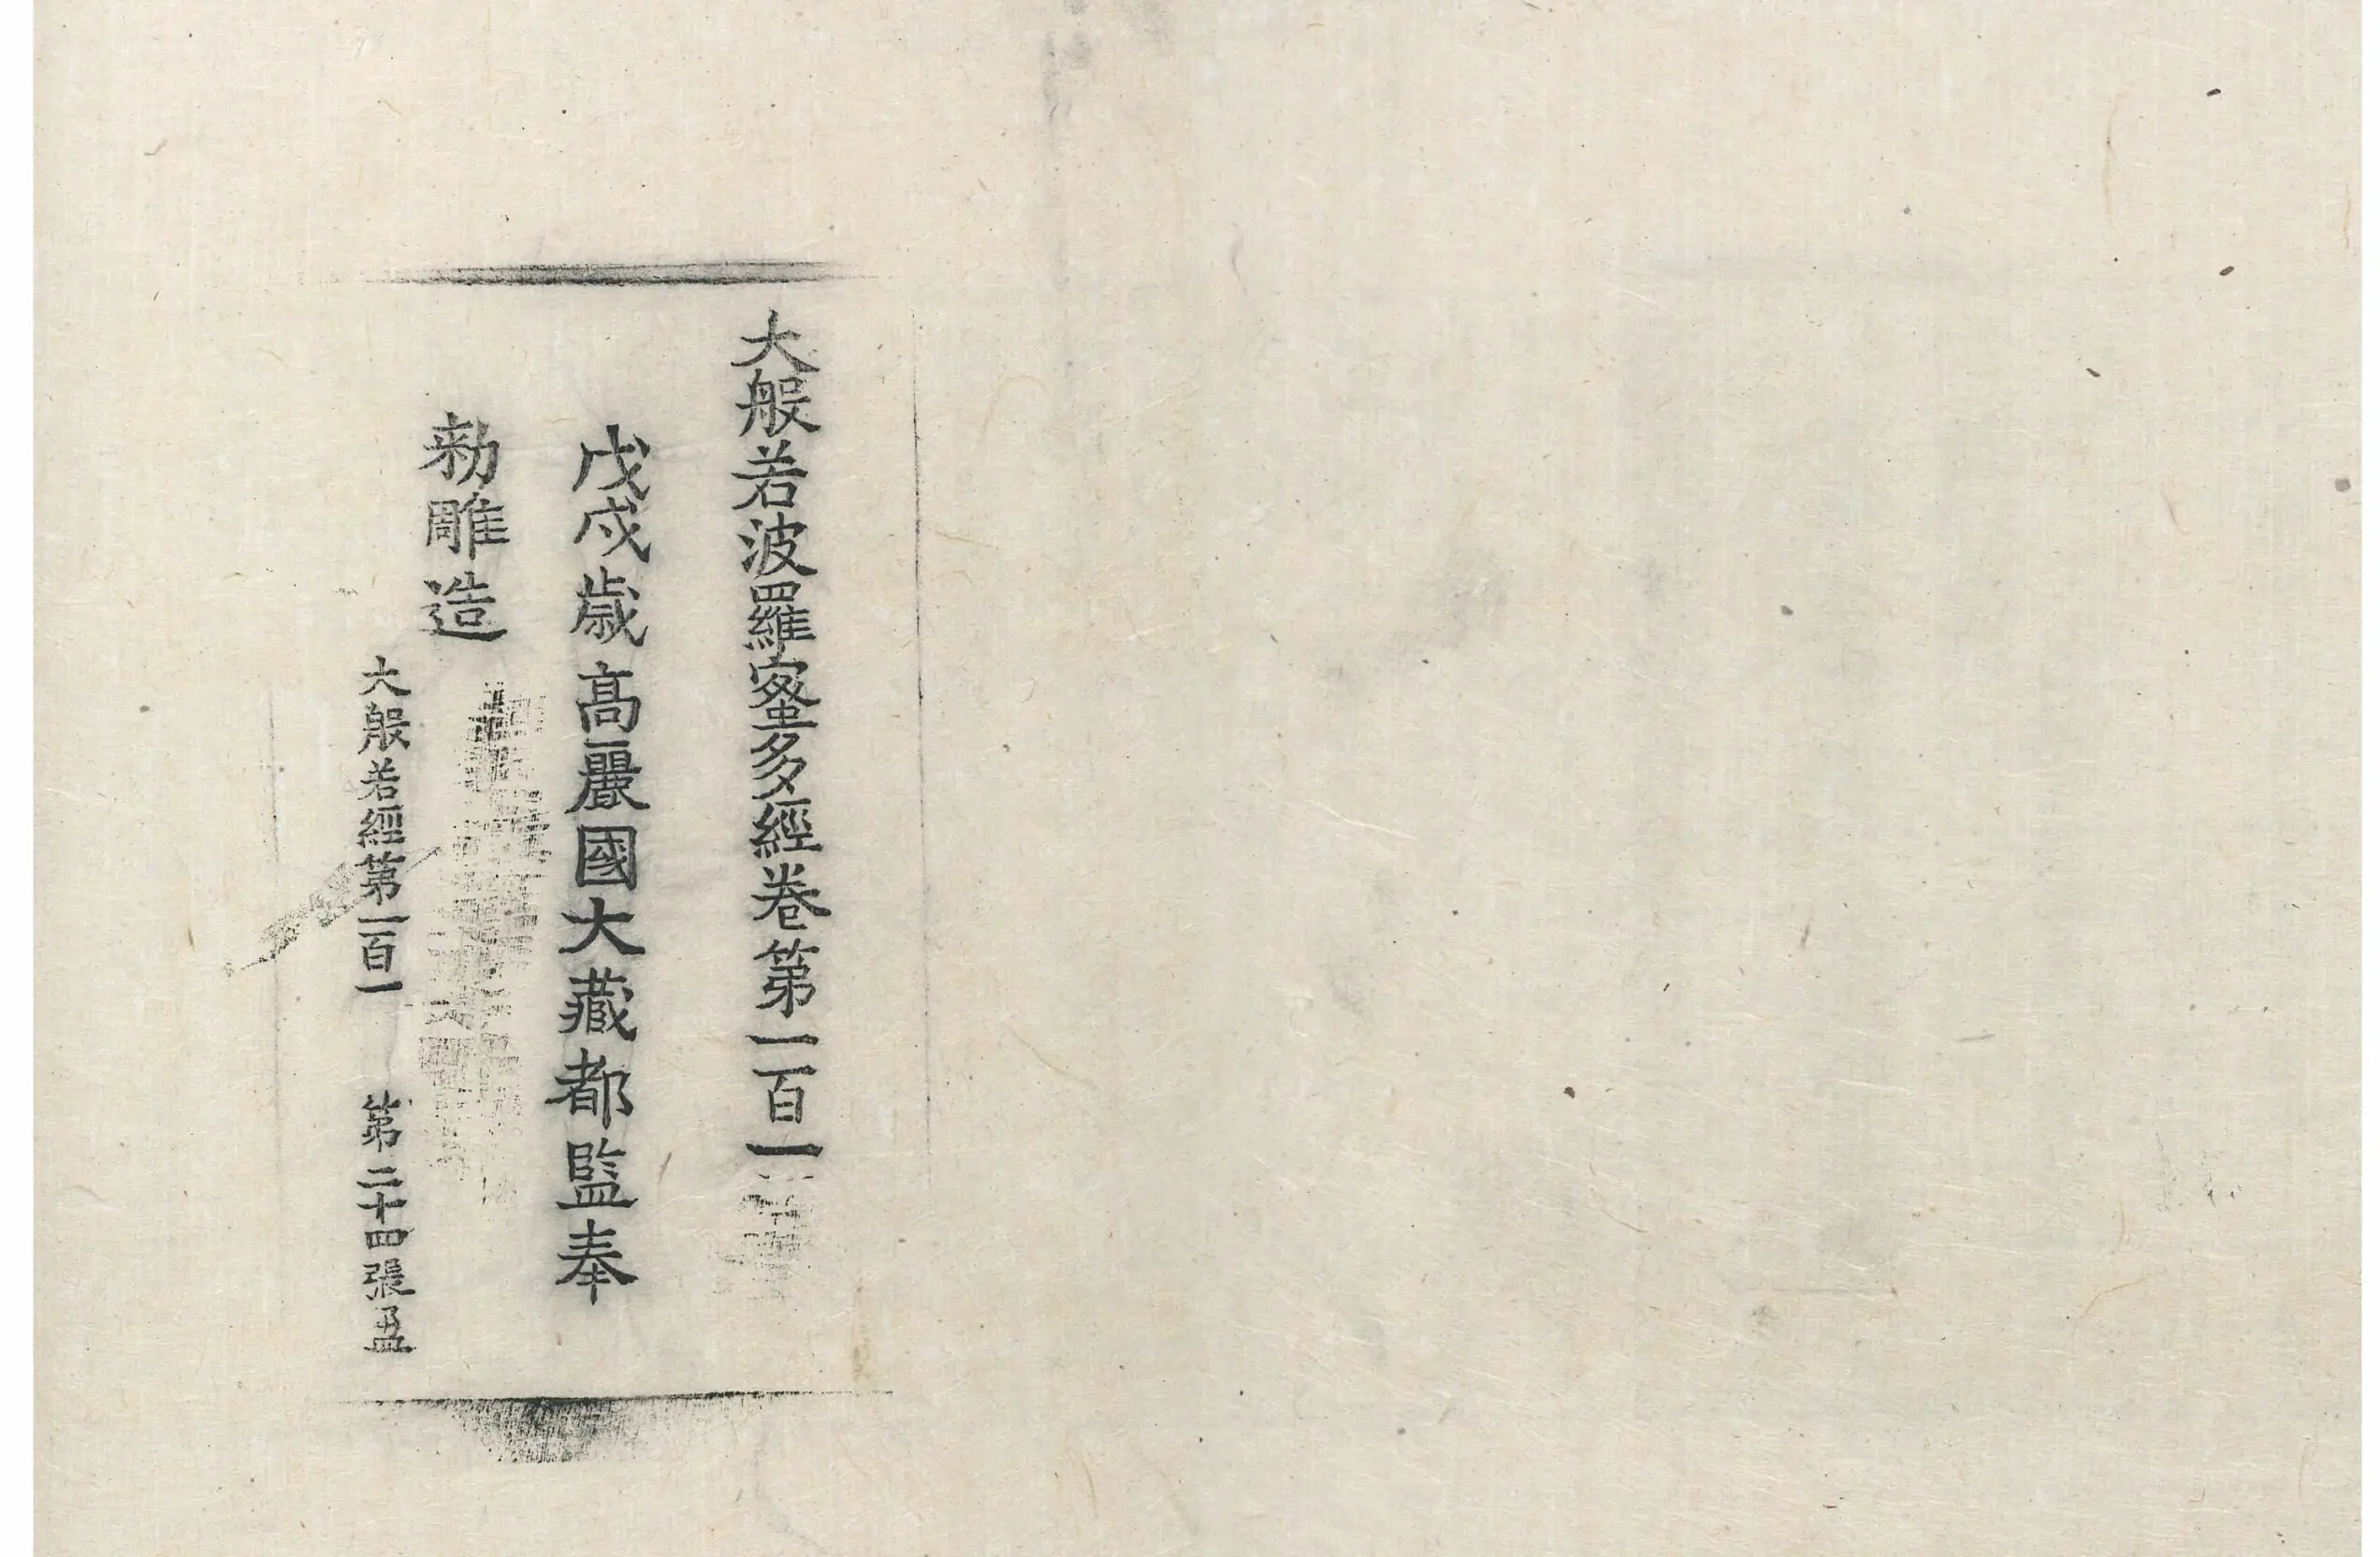 大般若波羅蜜多經卷第一百一
戊戌歲高麗國大藏都監奉
勅雕造
大般若經第一百一 第二十四張 盈